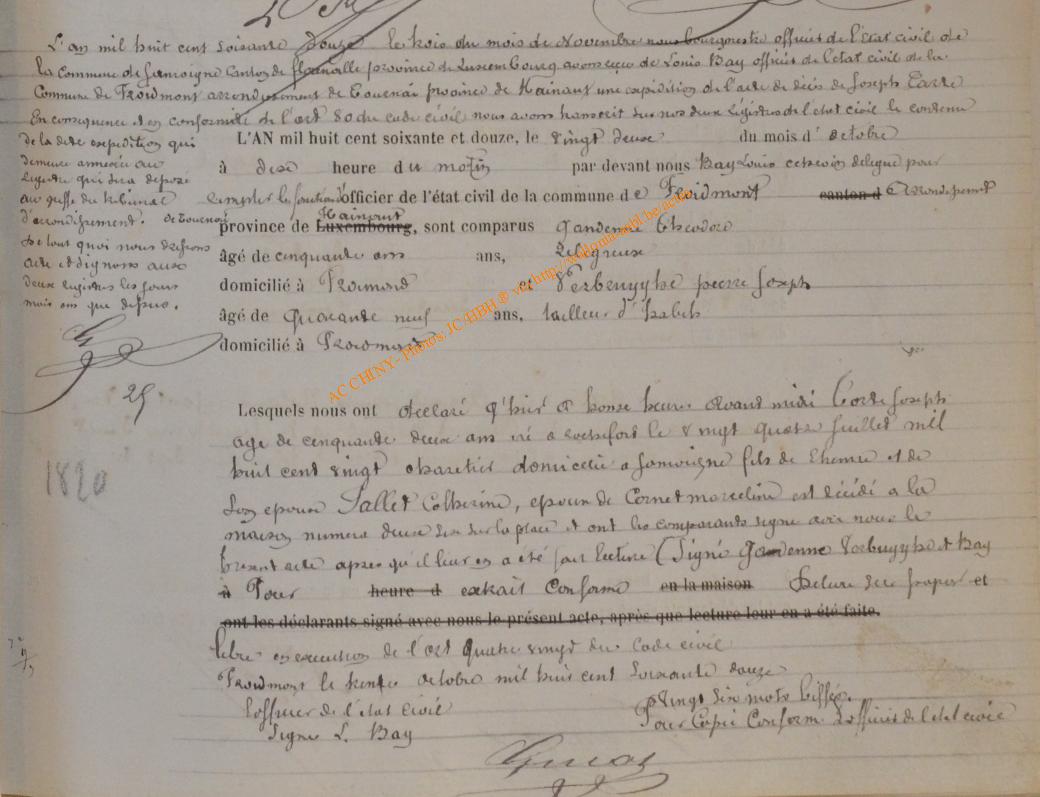 L'an mil huit cent soisante douze le trois du mois de Novembre nous bourgmestre officier de l'Etat civil de
la Commune de Jamoigne Canton de florenville province de Luxembourg avons reçu de Louis Bay officier de l'etat civil de la
Commune de Froidmont arrondissement de Tournai province de Hainaut une expédition de l'acte de décès de Joseph Corte
En conséquence et en conformité de l'art 80 du code civil nous avons transcrit sur nos deux registres de l'etat civil le contenu
de la dite expedition qui
demeure annexée au
registre qui sera déposé
au greffe du tribunal
d'arrondissement.
De tout quoi nous dressons
acte et signons aux
deux registres les jours
mois an que dessus.
25
1820
L'AN mil huit cent soixante et douze, le vingt deux du mois d' octobre
à deux heure du matin par devant nous Bay Louis échevin délégué pour
remplir les fonctions d'officier de l'état civil de la commune de Froidmont canton d arrondissement
de Tournai
Hainaut
province de Luxembourg, sont comparus Gandenne Théodore
âgé de cinquante ans ans, religieux
domicilié à Froidmond et Verbruyghe pierre Joseph
âgé de quarante neuf ans, tailleur d'habits
domicilié à Froidmond
Lesquels nous ont déclaré q'hier à honze heure avant midi Corte Joseph
age de cinquante deux ans né a rochefort le vingt quatre Juillet mil
huit cent vingt charetier domicilié a Jamoigne fils de Etienne et de
son epouse Sallet Catherine, epoux de Cornet marceline est décédé a la
maison numero deux sise sur la place et ont les comparants signé avec nous le
présent acte après qu'il leur en a été fait lecture (Signé Gandenne Verbuyghe et Bay
à Pour heure d extrait conforme en la maison Delivré sur papier et
ont les déclarants signé avec nous le présent acte, après que lecture leur en a été faite.
libre en execution de l'art quatre vingt du Code civil
Froidmont le trente octobre mil huit cent soixante douze
L'officier de l'état civil
Signé L. Bay
Vingt six mots biffés.
Pour Copie Conforme L'officier de l'état civil
AC CHINY - Photos: JC HBH ® via http://widoma asbl.be/action